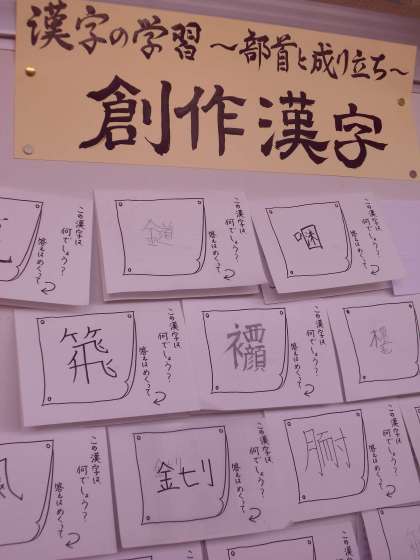 漢字の学習 〜部首と成り立ち〜
創作漢字
この漢字は
何でしょう?
答えはめくって
この漢字は
何でしょう?
答えはめくって
この漢字は
何でしょう?
答えはめくって
この漢字は
何でしょう?
答えはめくって
この漢字は
何でしょう?
答えはめくって
この漢字は
何でしょう?
答えはめくって
この漢字は
何でしょう?
答えはめくって
この漢字は
何でしょう?
答えはめくって